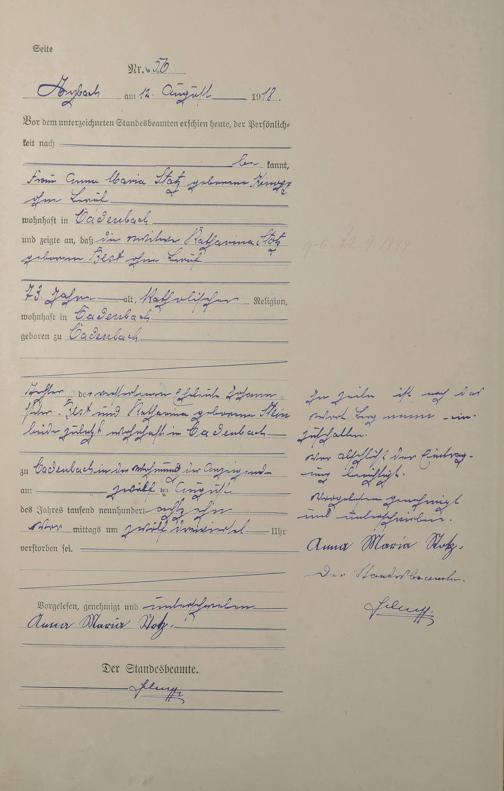 Seite
Nr. 56
Arzbach am 12. August 1918.
Vor dem unterzeichneten Standesbeamten erschien heute, der Persönlich-
keit nach
be kannt,
Frau Anna Maria Stotz geborene
ohne Beruf
wohnhaft in Cadenbach
und zeigte an, daß die Witwe Katharina Stotz
geborene Best ohne Beruf
73 Jahre alt, katholischer Religion,
wohnhaft in Cadenbach
geboren zu Cadenbach
Tochter der verstorbenen Eheleute Johann
Best und Katharina geborene
beide zuletzt wohnhaft in Cadenbach
zu Cadenbach in der Wohnung der Anzeigende
am zwölf ten August
des Jahres tausend neunhundert achtzehn
Vor mittags um zwölf Uhr
verstorben sei.
Vorgelesen, genehmigt und unterschrieben
Anna Maria Stotz.
Der Standesbeamte.
ist nach das
Wort ein-
zuschalten.
Vor Abschluß der Eintrag-
ung berichtigt.
Vorgelesen genehmigt
und unterschrieben.
Anna Maria Stotz.
Der Standesbeamte.